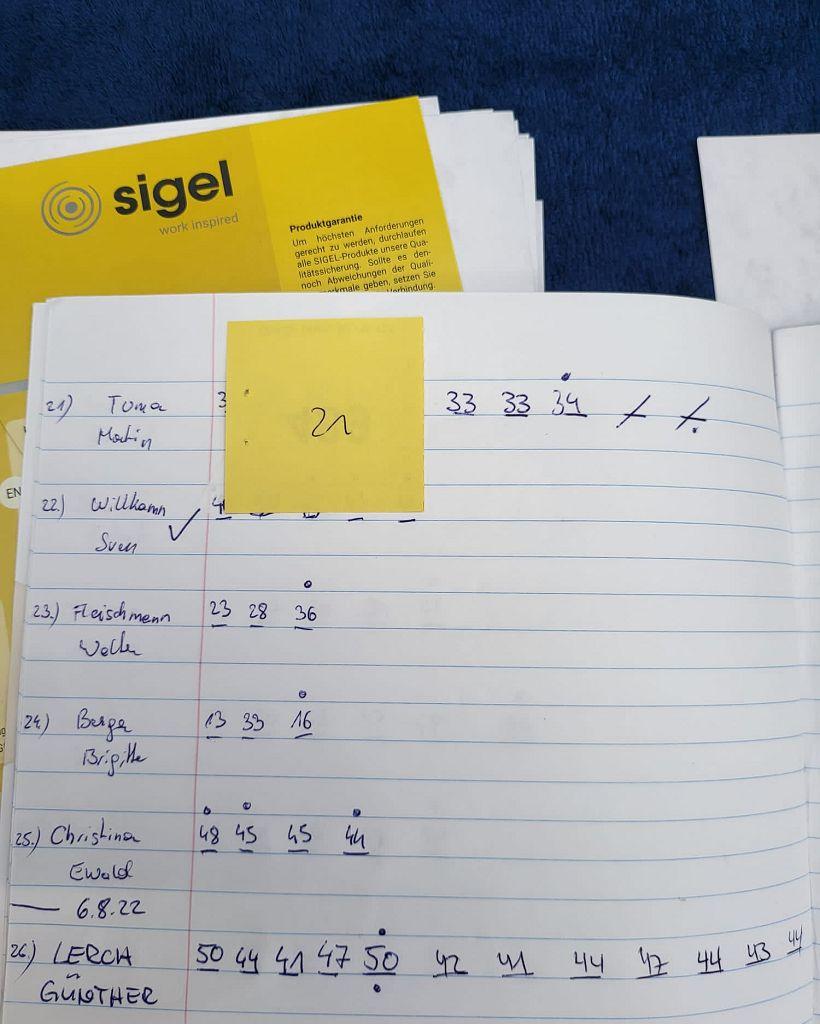 sigel
work inspired
Produktgarantie
Um höchsten Anforderungen
gerecht zu werden, durchlaufen
alle SIGEL-Produkte unsere Qua-
litätssicherung. Sollte es den-
noch Abweichungen der Quali-
rkmale geben, setzen Sie
Verbindung.
EN
21
21) Toma 33 33 34
Martin
22.) Willkamm
Sven
23.) Fleischmenn 23 28 36
Walter
24.) Berger 13 33 16
Brigitte
25.) Christina 48 45 45 44
Ewald
6.8.22
26.) LERCH 50 44 41 47 50 42 41 44 47 44 43 44
GÜNTHER